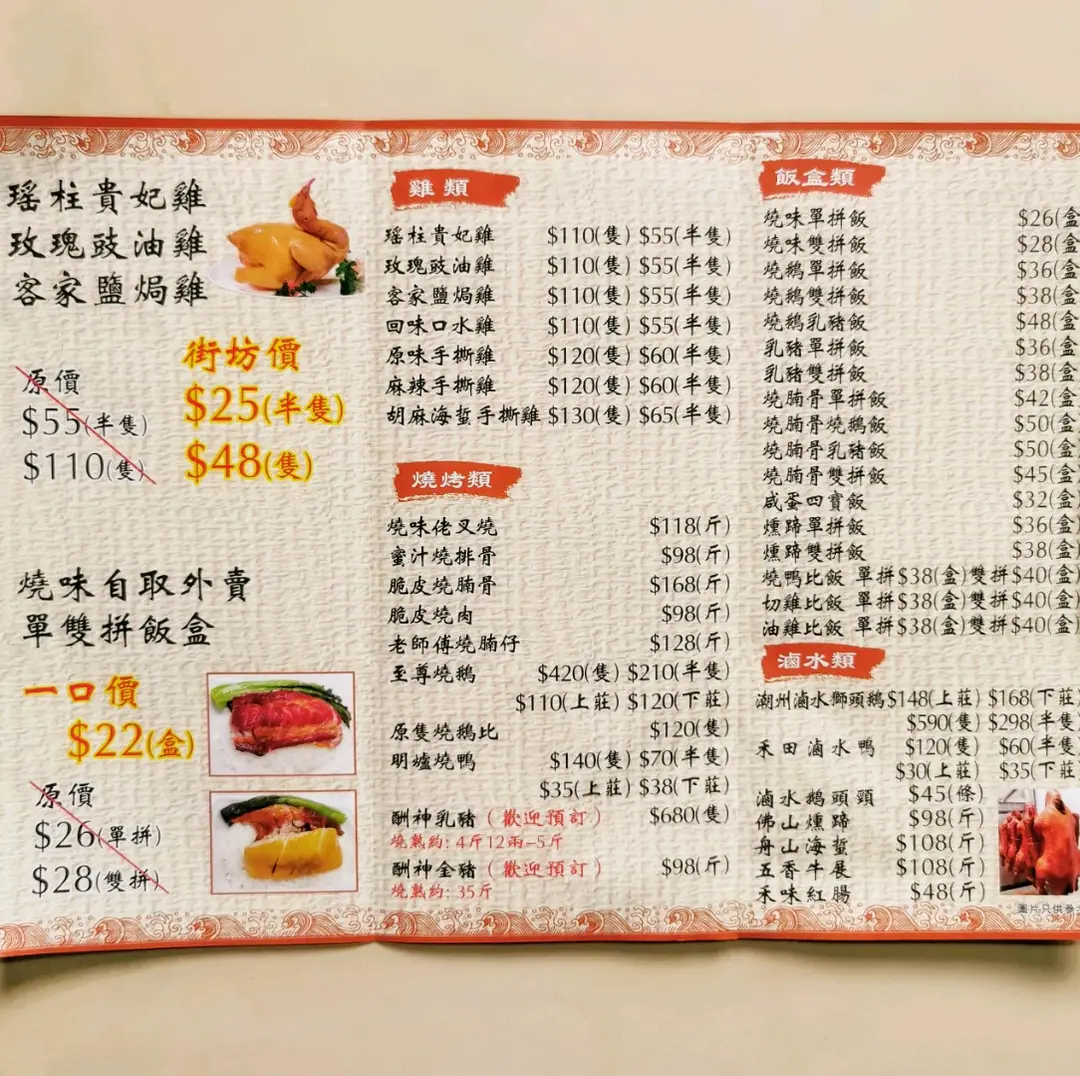 瑤柱貴妃雞
玫瑰豉油雞
客家鹽焗雞
街坊價
$25(半隻)
$48(隻)
原價
$55(半隻)
$110(隻)
燒味自取外賣
單雙拼飯盒
一口價
$22(盒)
原價
$26(單拼)
$28(雙拼)
雞類
瑤柱貴妃雞 $110(隻) $55(半隻)
玫瑰豉油雞 $110(隻) $55(半隻)
客家鹽焗雞 $110(隻) $55(半隻)
回味口水雞 $110(隻) $55(半隻)
原味手撕雞 $120(隻) $60(半隻)
麻辣手撕雞 $120(隻) $60(半隻)
胡麻海蜇手撕雞 $130(隻) $65(半隻)
燒烤類
燒味佬叉燒 $118(斤)
蜜汁燒排骨 $98(斤)
脆皮燒腩骨 $168(斤)
脆皮燒肉 $98(斤)
老師傅燒腩仔 $128(斤)
至尊燒鵝 $420(隻) $210(半隻)
$110(上莊) $120(下莊)
原隻燒鵝比 $120(隻)
明爐燒鴨 $140(隻) $70(半隻)
$35(上莊) $38(下莊)
酬神乳豬(歡迎預訂) $680(隻)
燒熟約: 4斤12兩-5斤
酬神金豬(歡迎預訂) $98(斤)
燒熟約: 35斤
飯盒類
燒味單拼飯 $26(盒
燒味雙拼飯 $28(盒
燒鵝單拼飯 $36(盒
燒鵝雙拼飯 $38(盒
燒鵝乳豬飯 $48(盒
乳豬單拼飯 $36(盒
乳豬雙拼飯 $38(盒
燒腩骨單拼飯 $42(盒
燒腩骨燒鵝飯 $50(盒
燒腩骨乳豬飯 $50(盒
燒腩骨雙拼飯 $45(盒
咸蛋四寶飯 $32(盒
燻蹄單拼飯 $36(盒
燻蹄雙拼飯 $38(盒
燒鴨比飯 單拼$38(盒)雙拼$40(盒)
切雞比飯 單拼$38(盒)雙拼$40(盒)
油雞比飯 單拼$38(盒)雙拼$40(盒)
滷水類
潮州滷水獅頭鵝$148(上莊) $168(下莊)
$590(隻) $298(半隻
禾田滷水鴨 $120(隻) $60(半隻
$30(上莊) $35(下莊
滷水鵝頭頸 $45(條)
佛山燻蹄 $98(斤)
舟山海蜇 $108(斤)
五香牛展 $108(斤)
禾味紅腸 $48(斤)
圖片只供參